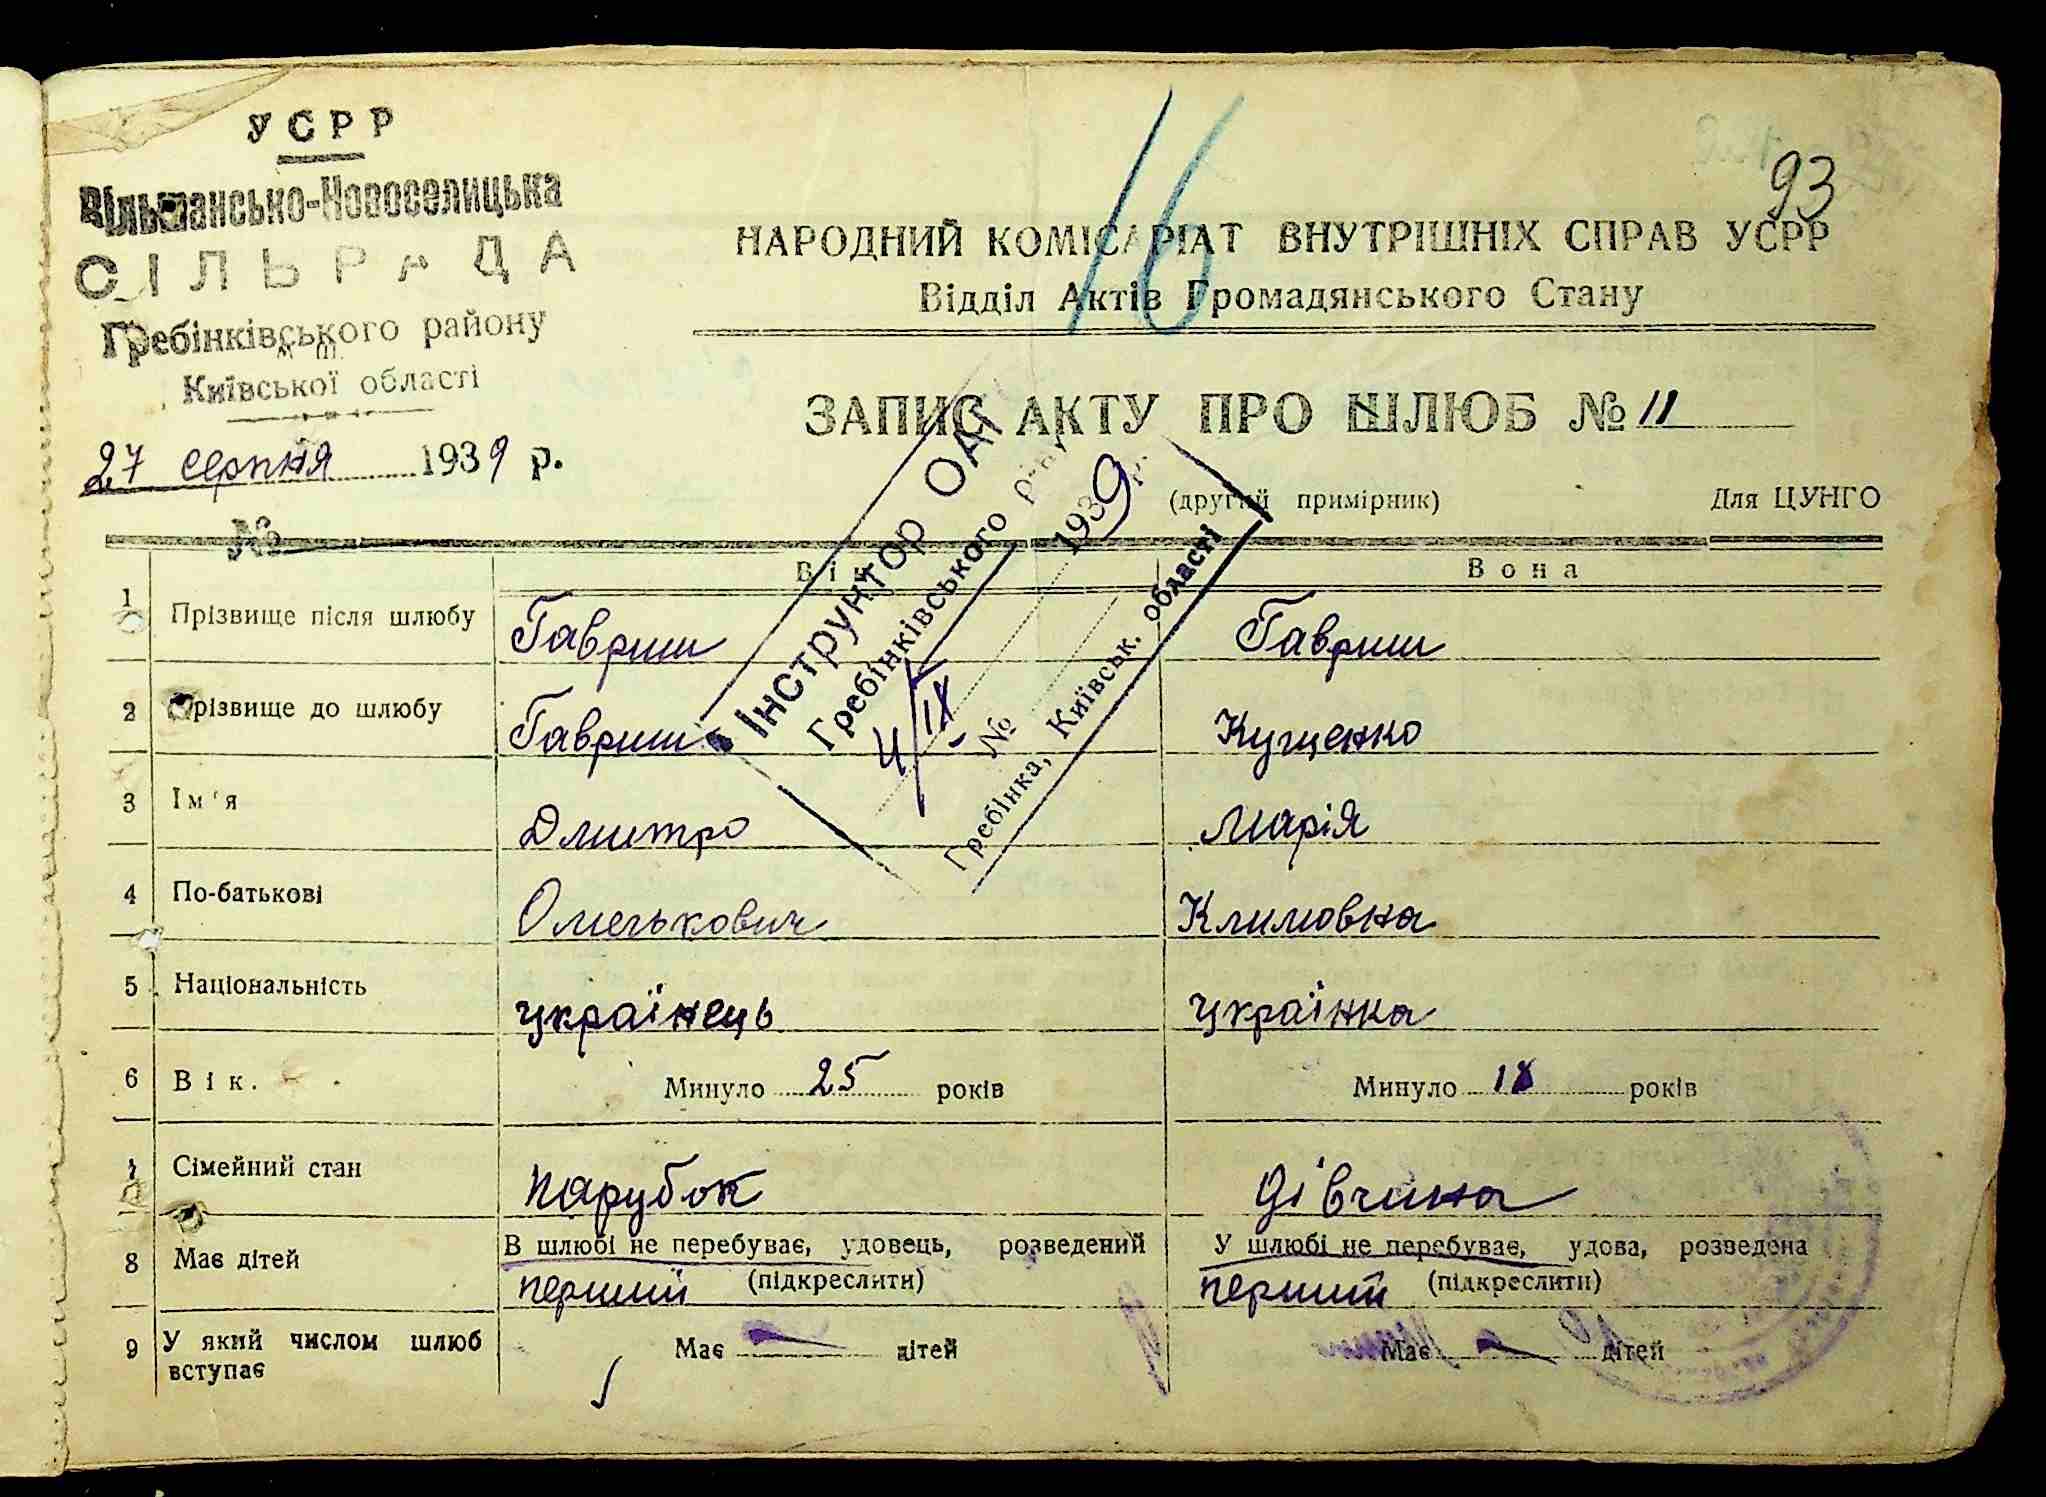 УСРР
Вільшансько-Новоселицька
СІЛЬРАДА
Гребінківського району
Київської області
27 серпня 1939 р.
№
16
93
НАРОДНИЙ КОМІСАРІАТ ВНУТРІШНІХ СПРАВ УСРР
Відділ Актів Громадянського Стану
ЗАПИС АКТУ ПРО ШЛЮБ № 11
(другий примірник) Для ЦУНГО
Інструктор ОАГС
Гребінківського р-ну
4/IX 1939 р.
№
Гребінка, Київськ. області
Він Вона
1 Прізвище після шлюбу Гавриш Гавриш
2 Прізвище до шлюбу Гавриш Кущенко
3 Ім'я Дмитро Марія
4 По-батькові Омелькович Климовна
5 Національність українець українка
6 Вік. Минуло 25 років Минуло 18 років
7 Сімейний стан парубок дівчина
8 Має дітей В шлюбі не перебуває, удовець, розведений У шлюбі не перебуває, удова, розведена
перший (підкреслити) перший (підкреслити)
9 У який числом шлюб вступає Має дітей Має дітей